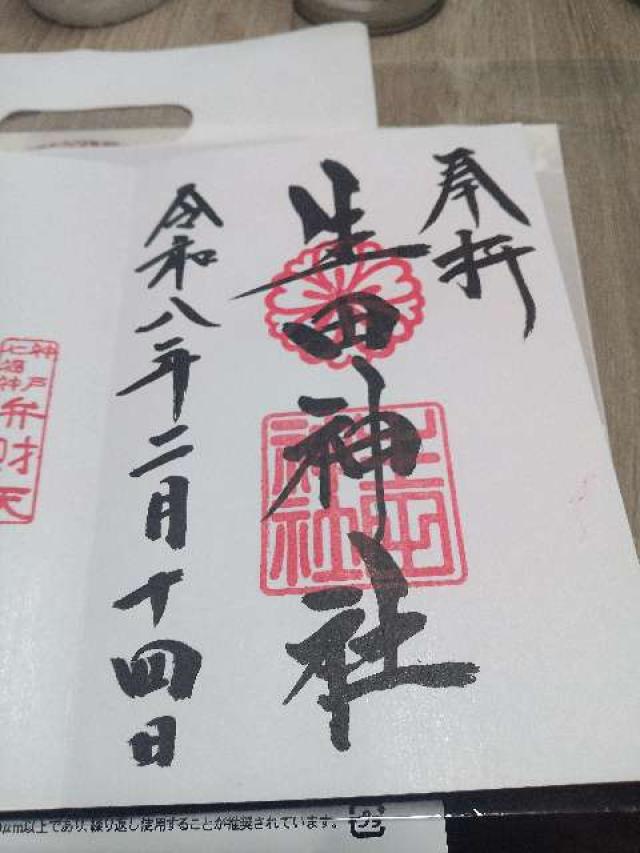 奉拝
生田神社
生田神社
令和八年二月十四日
神戸
七福神
弁財天
μm以上であり、繰り返し使用することが推奨されています。
プラ